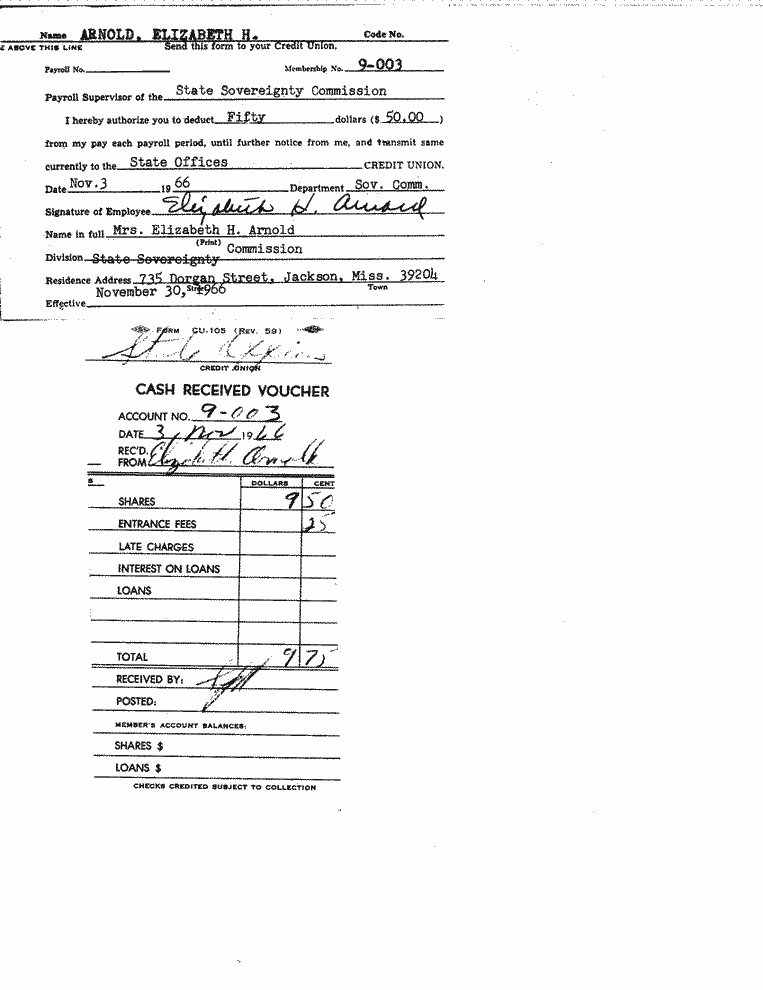 Name ARNOLD, ELIZABETH H. Code No.
E ABOVE THIS LINE Send this form to your Credit Union.
Payroll No. Membership No. 9-003
Payroll Supervisor of the State Sovereignty Commission
I hereby authorize you to deduct Fifty dollars ($ 50.00 )
from my pay each payroll period, until further notice from me, and transmit same
currently to the State Offices CREDIT UNION.
Date Nov.3 19 66 Department Sov. Comm.
Signature of Employee Elizabeth H. Arnold
Name in full Mrs. Elizabeth H. Arnold
(Print) Commission
Division State Sovereignty
Residence Address 735 Dorgan Street, Jackson, Miss. 39204
November 30, 1966 Town
Effective
FORM CU-105 (REV. 59)
State
CREDIT UNION
CASH RECEIVED VOUCHER
ACCOUNT NO. 9-003
DATE 3, Nov 1966
REC'D.
FROM Elizabeth Arnold
$ DOLLARS CENT
SHARES 9 50
ENTRANCE FEES 25
LATE CHARGES
INTEREST ON LOANS
LOANS
TOTAL 9 75
RECEIVED BY:
POSTED:
MEMBER'S ACCOUNT BALANCES:
SHARES $
LOANS $
CHECKS CREDITED SUBJECT TO COLLECTION